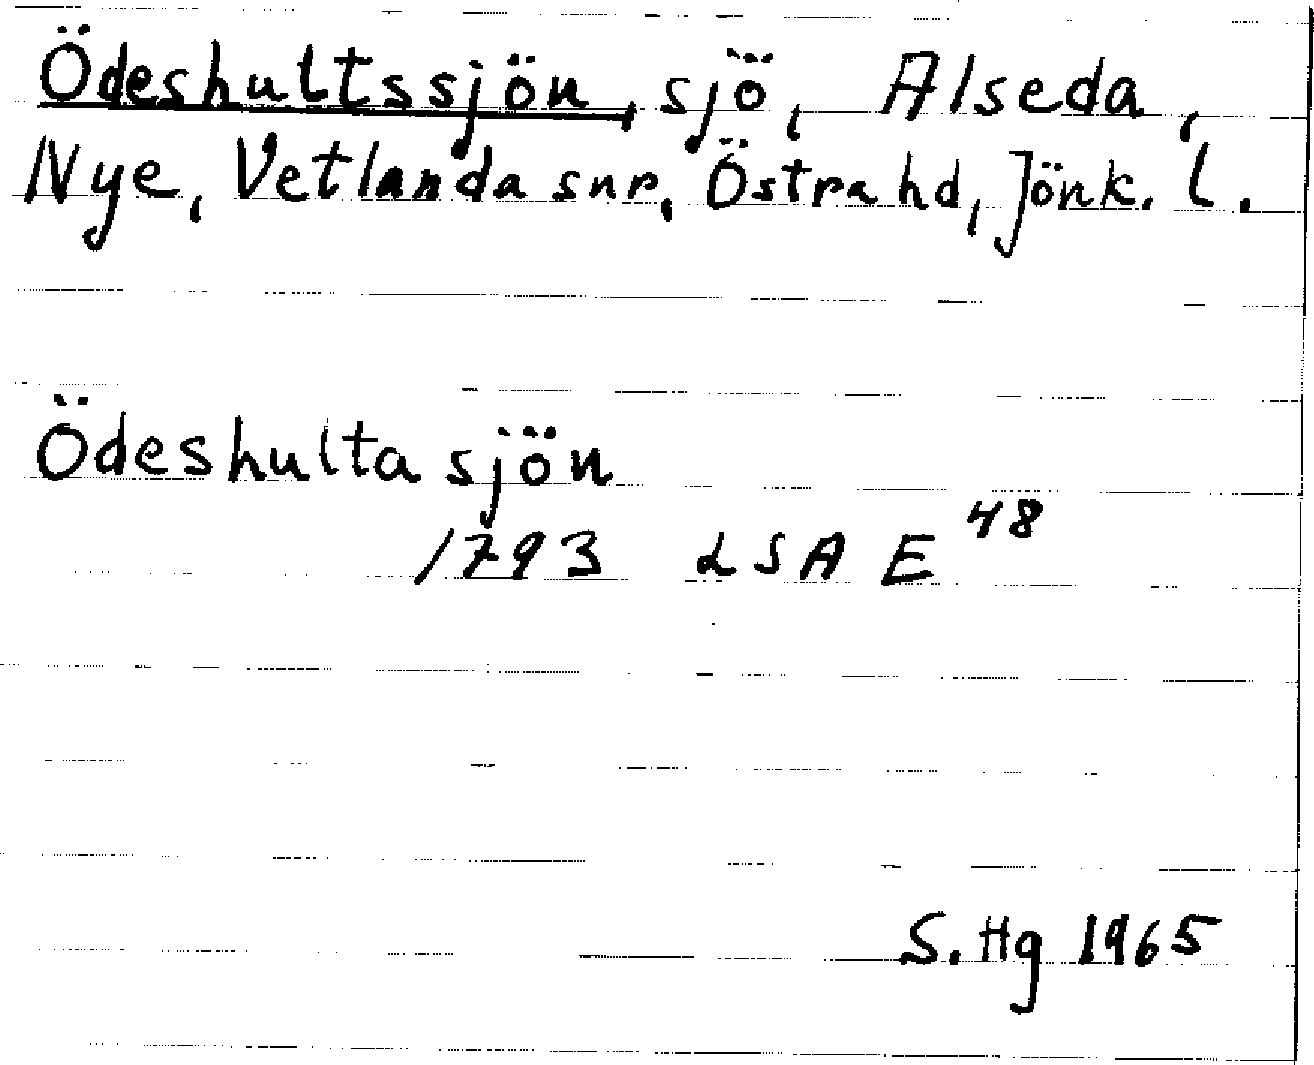 Ödeshultssjön, sjö, Alseda,
Nye, Vetlanda snr, Östra hd, Jönk. l.
Ödeshulta sjön
1793 LSA E 48
S. Hg 1965